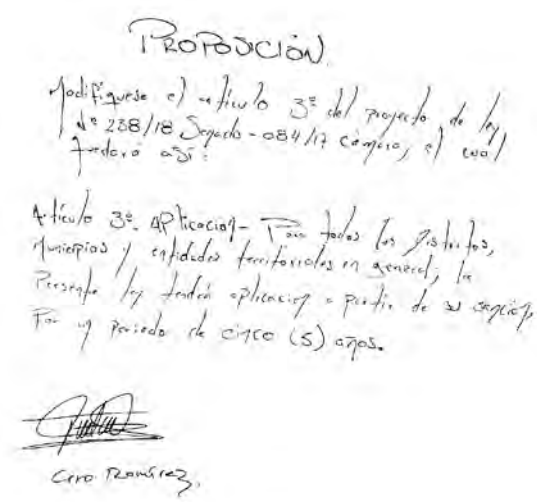 PROPOSICIÓN
Modifíquese el artículo 3º del proyecto de ley
Nº 238/18 Senado - 084/17 cámara, el cual
quedará así:
Artículo 3º. APlicación - Para todos los Distritos,
Municipios y entidades territoriales en general, la
Presente ley tendrá aplicación a partir de su sanción,
Por un periodo de cinco (5) años.
Ciro Ramírez.